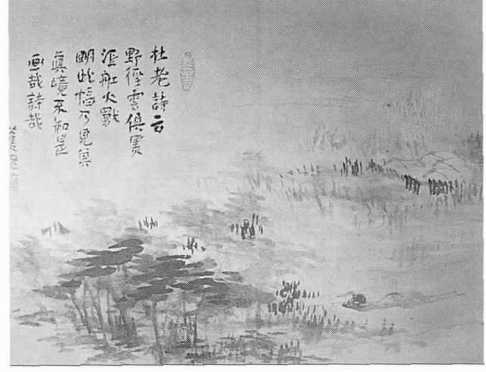 杜老詩云
野徑雲俱黑
江舡火獨
明此幅乃見其
真境未知是
画哉詩哉